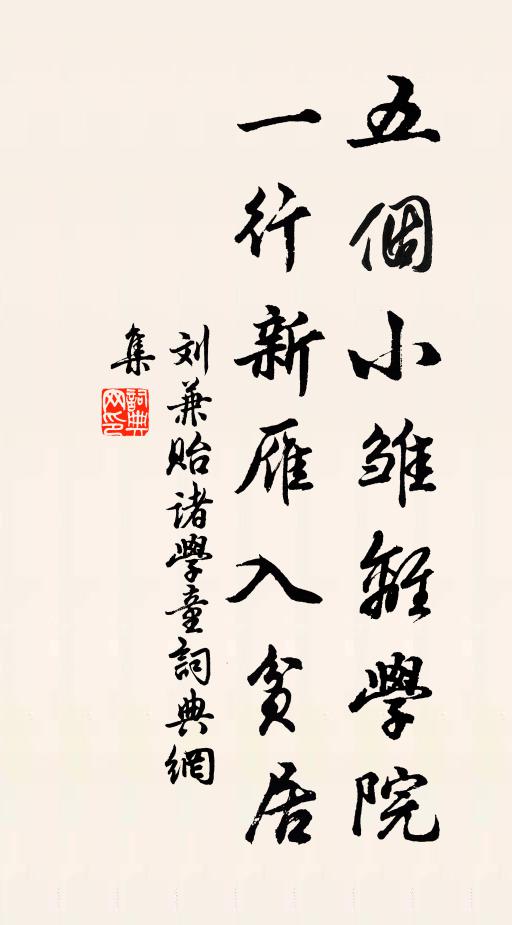 五個小雛離學院
一行新雁入貧居
刘兼貽诸學童詞典網
集
詞典
网印